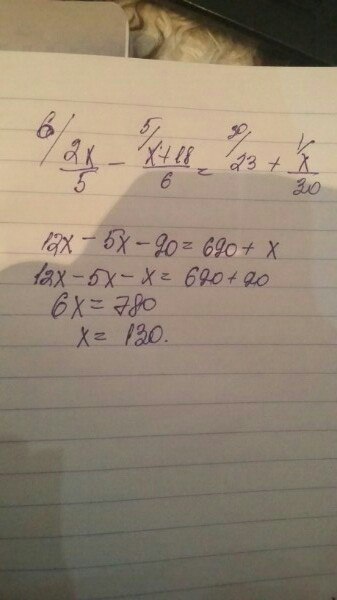 6/ 5/ 30/ 1/
2x/5 − x+18/6 = 23 + x/30
12x − 5x − 90 = 690 + x
12x − 5x − x = 690 + 90
6x = 780
x = 130.